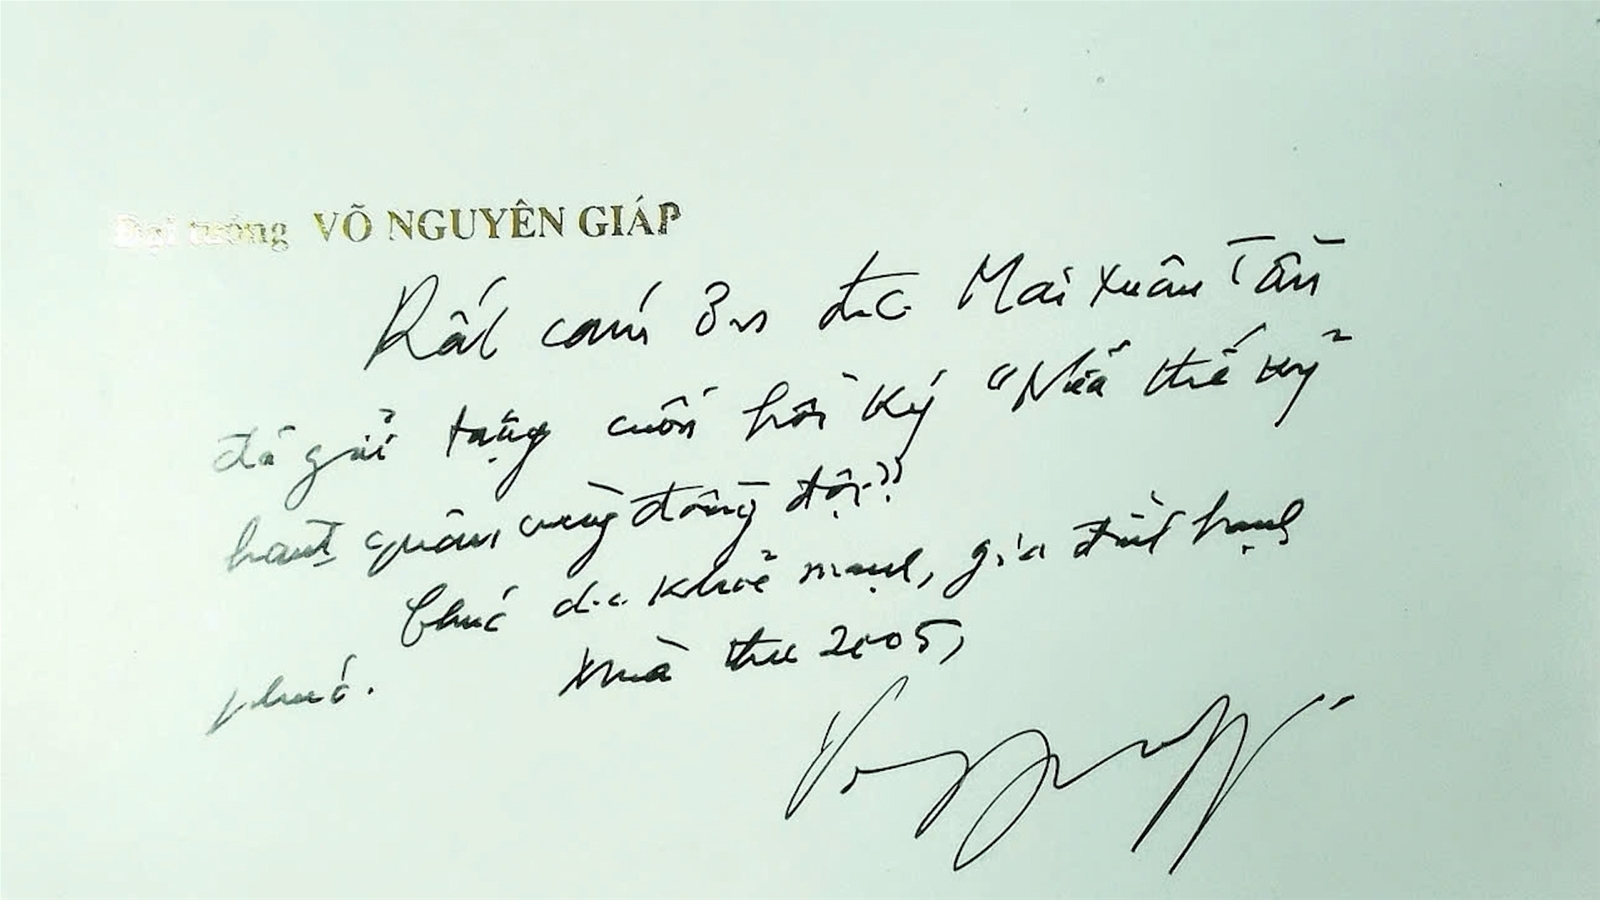 Đại tướng VÕ NGUYÊN GIÁP
Rất cảm ơn đ.c. Mai Xuân Tần
đã gửi tặng cuốn hồi ký “Nửa thế kỷ”
hành quân cùng đồng đội”
Chúc đ.c. khoẻ mạnh, gia đình hạnh
phúc. Mùa thu 2005,